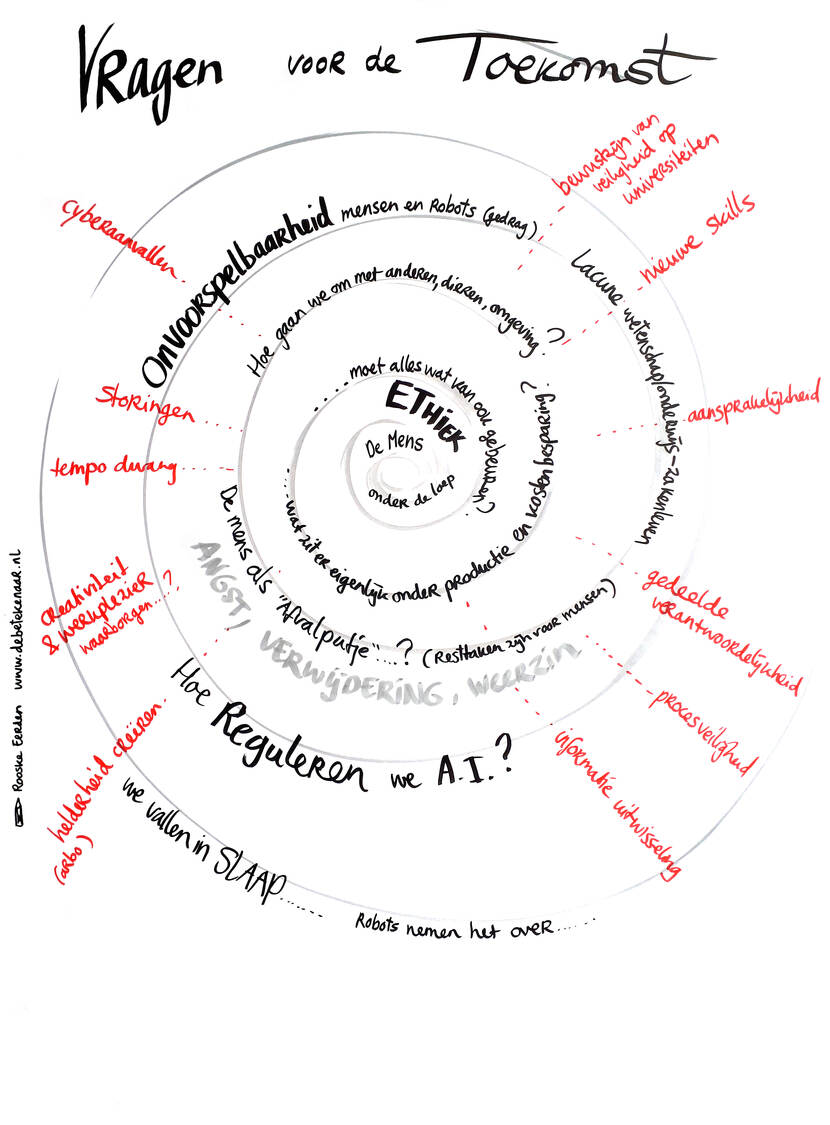 Vragen voor de Toekomst
bewustzijn van
veiligheid op
universiteiten
cyberaanvallen
nieuwe skills
Onvoorspelbaarheid mensen en Robots (gedrag)
Lacune wetenschap/onderwijs - zakenleven
Hoe gaan we om met anderen, dieren, omgeving?
.....moet alles wat kan ook gebeuren?
ETHIEK
De Mens
onder de loep
.....wat zit er eigenlijk onder productie en kosten besparing?
storingen
aansprakelijkheid
tempo dwang
De mens als "Afvalputje"....? (Resttaken zijn voor mensen)
ANGST, VERWIJDERING, WEERZIN
creativiteit
& werkplezier
waarborgen....?
gedeelde
verantwoordelijkheid
procesveiligheid
informatie uitwisseling
helderheid creëren
(arbo)
Hoe Reguleren we A.I.?
we vallen in SLAAP......
Robots nemen het over......
Rooske Eerden www.debetekenaar.nl